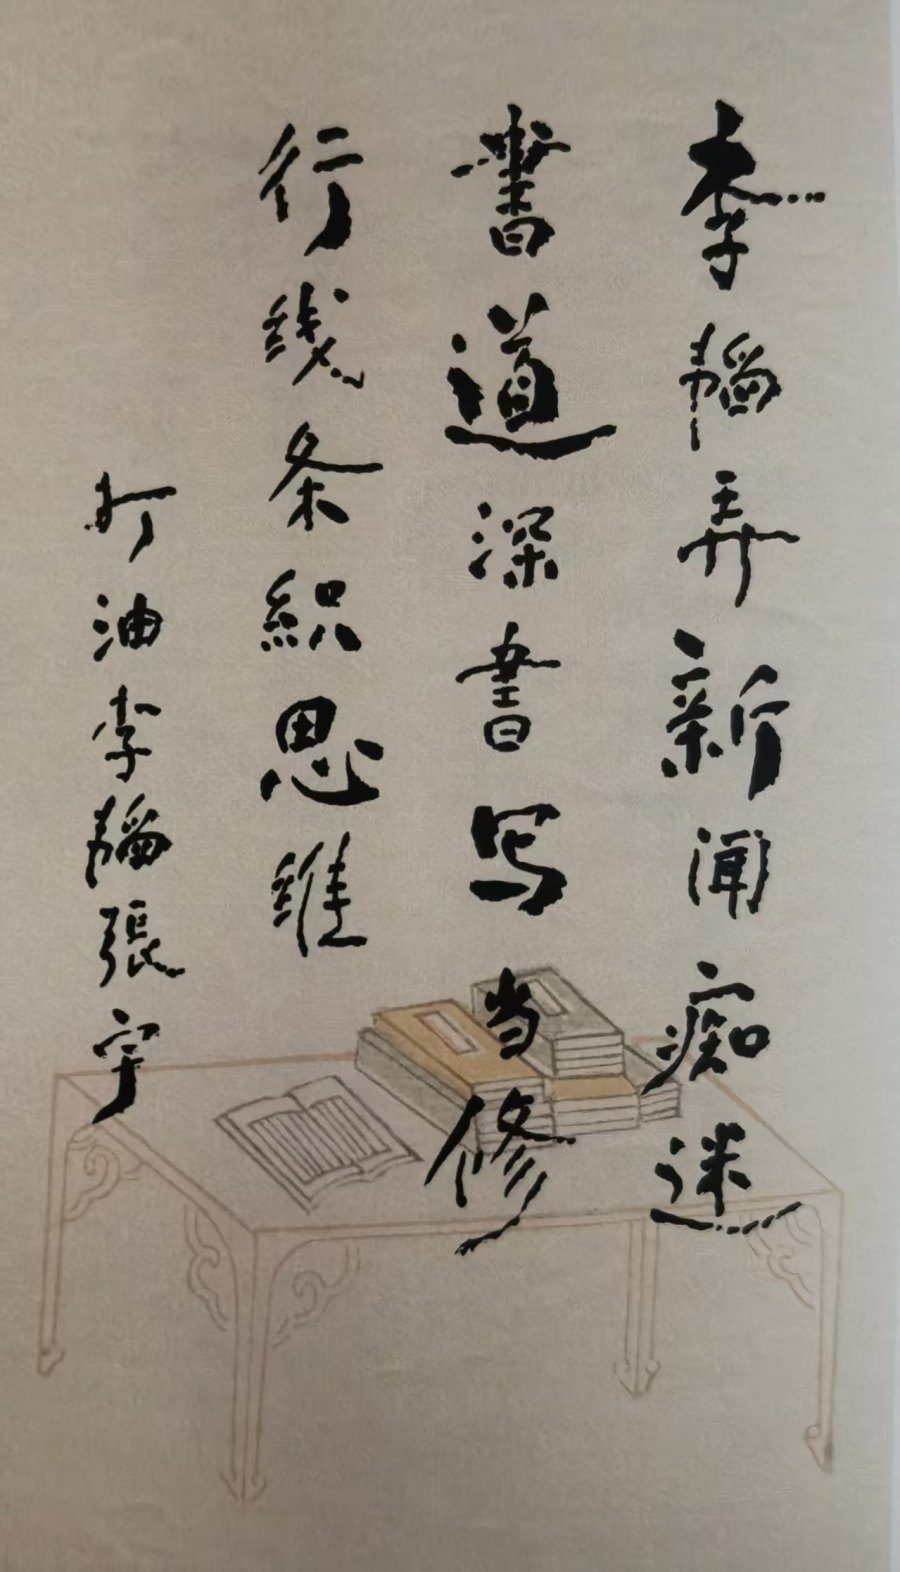 李韬弄新闻痴迷
書道深書写当修
行线条织思维
打油李韬張宇